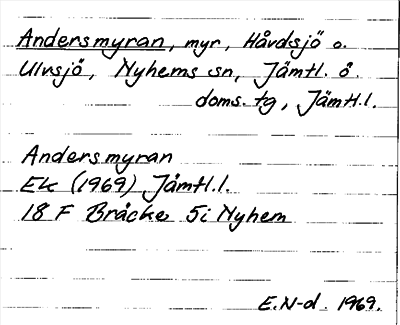 Andersmyran, myr, Håvdsjö o.
Ulvsjö, Nyhems sn, Jämtl. ö.
doms. tg, Jämtl.l.
Andersmyran
EK (1969) Jämtl.l.
18 F Bräcke 5i Nyhem
E.N-d. 1969.